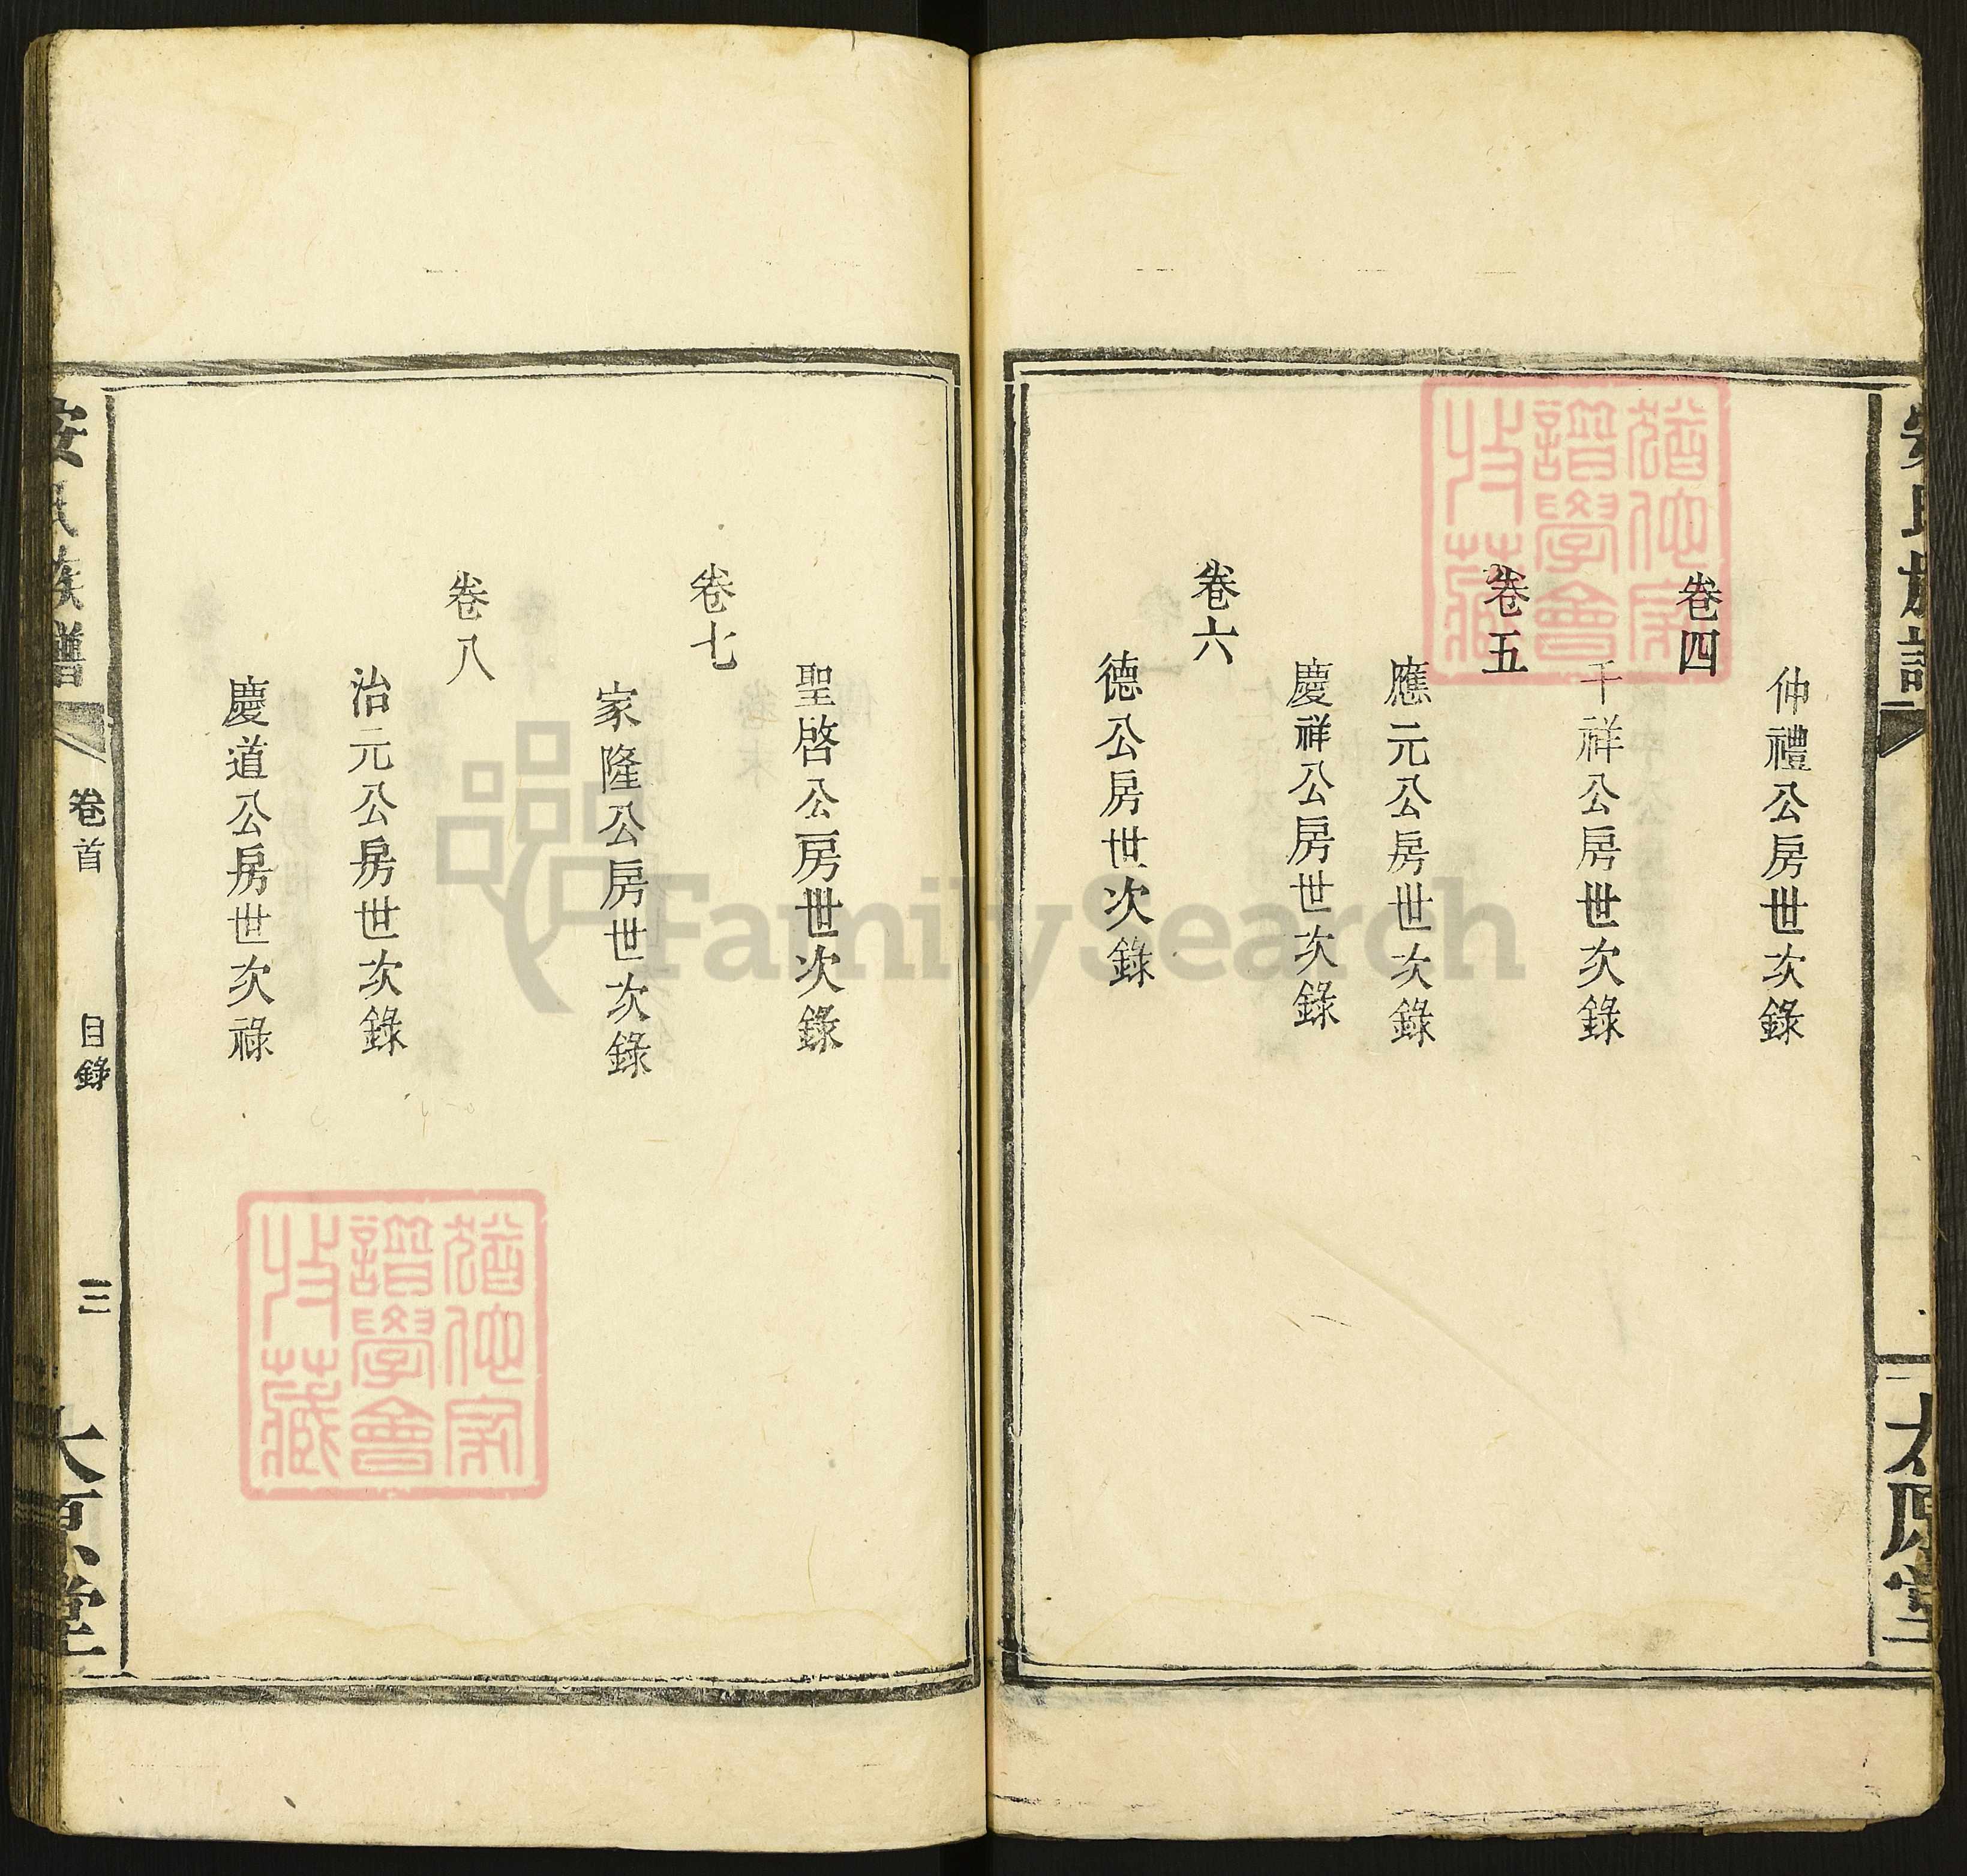 安氏族譜
太原堂
仲禮公房世次錄
卷四
千祥公房世次錄
卷五
應元公房世次錄
慶祥公房世次錄
卷六
德公房世次錄
聖啓公房世次錄
卷七
家隆公房世次錄
卷八
治元公房世次錄
慶道公房世次祿
安氏族譜
卷首
目錄
三
太原堂
譜學會
收藏
譜學會
收藏
FamilySearch